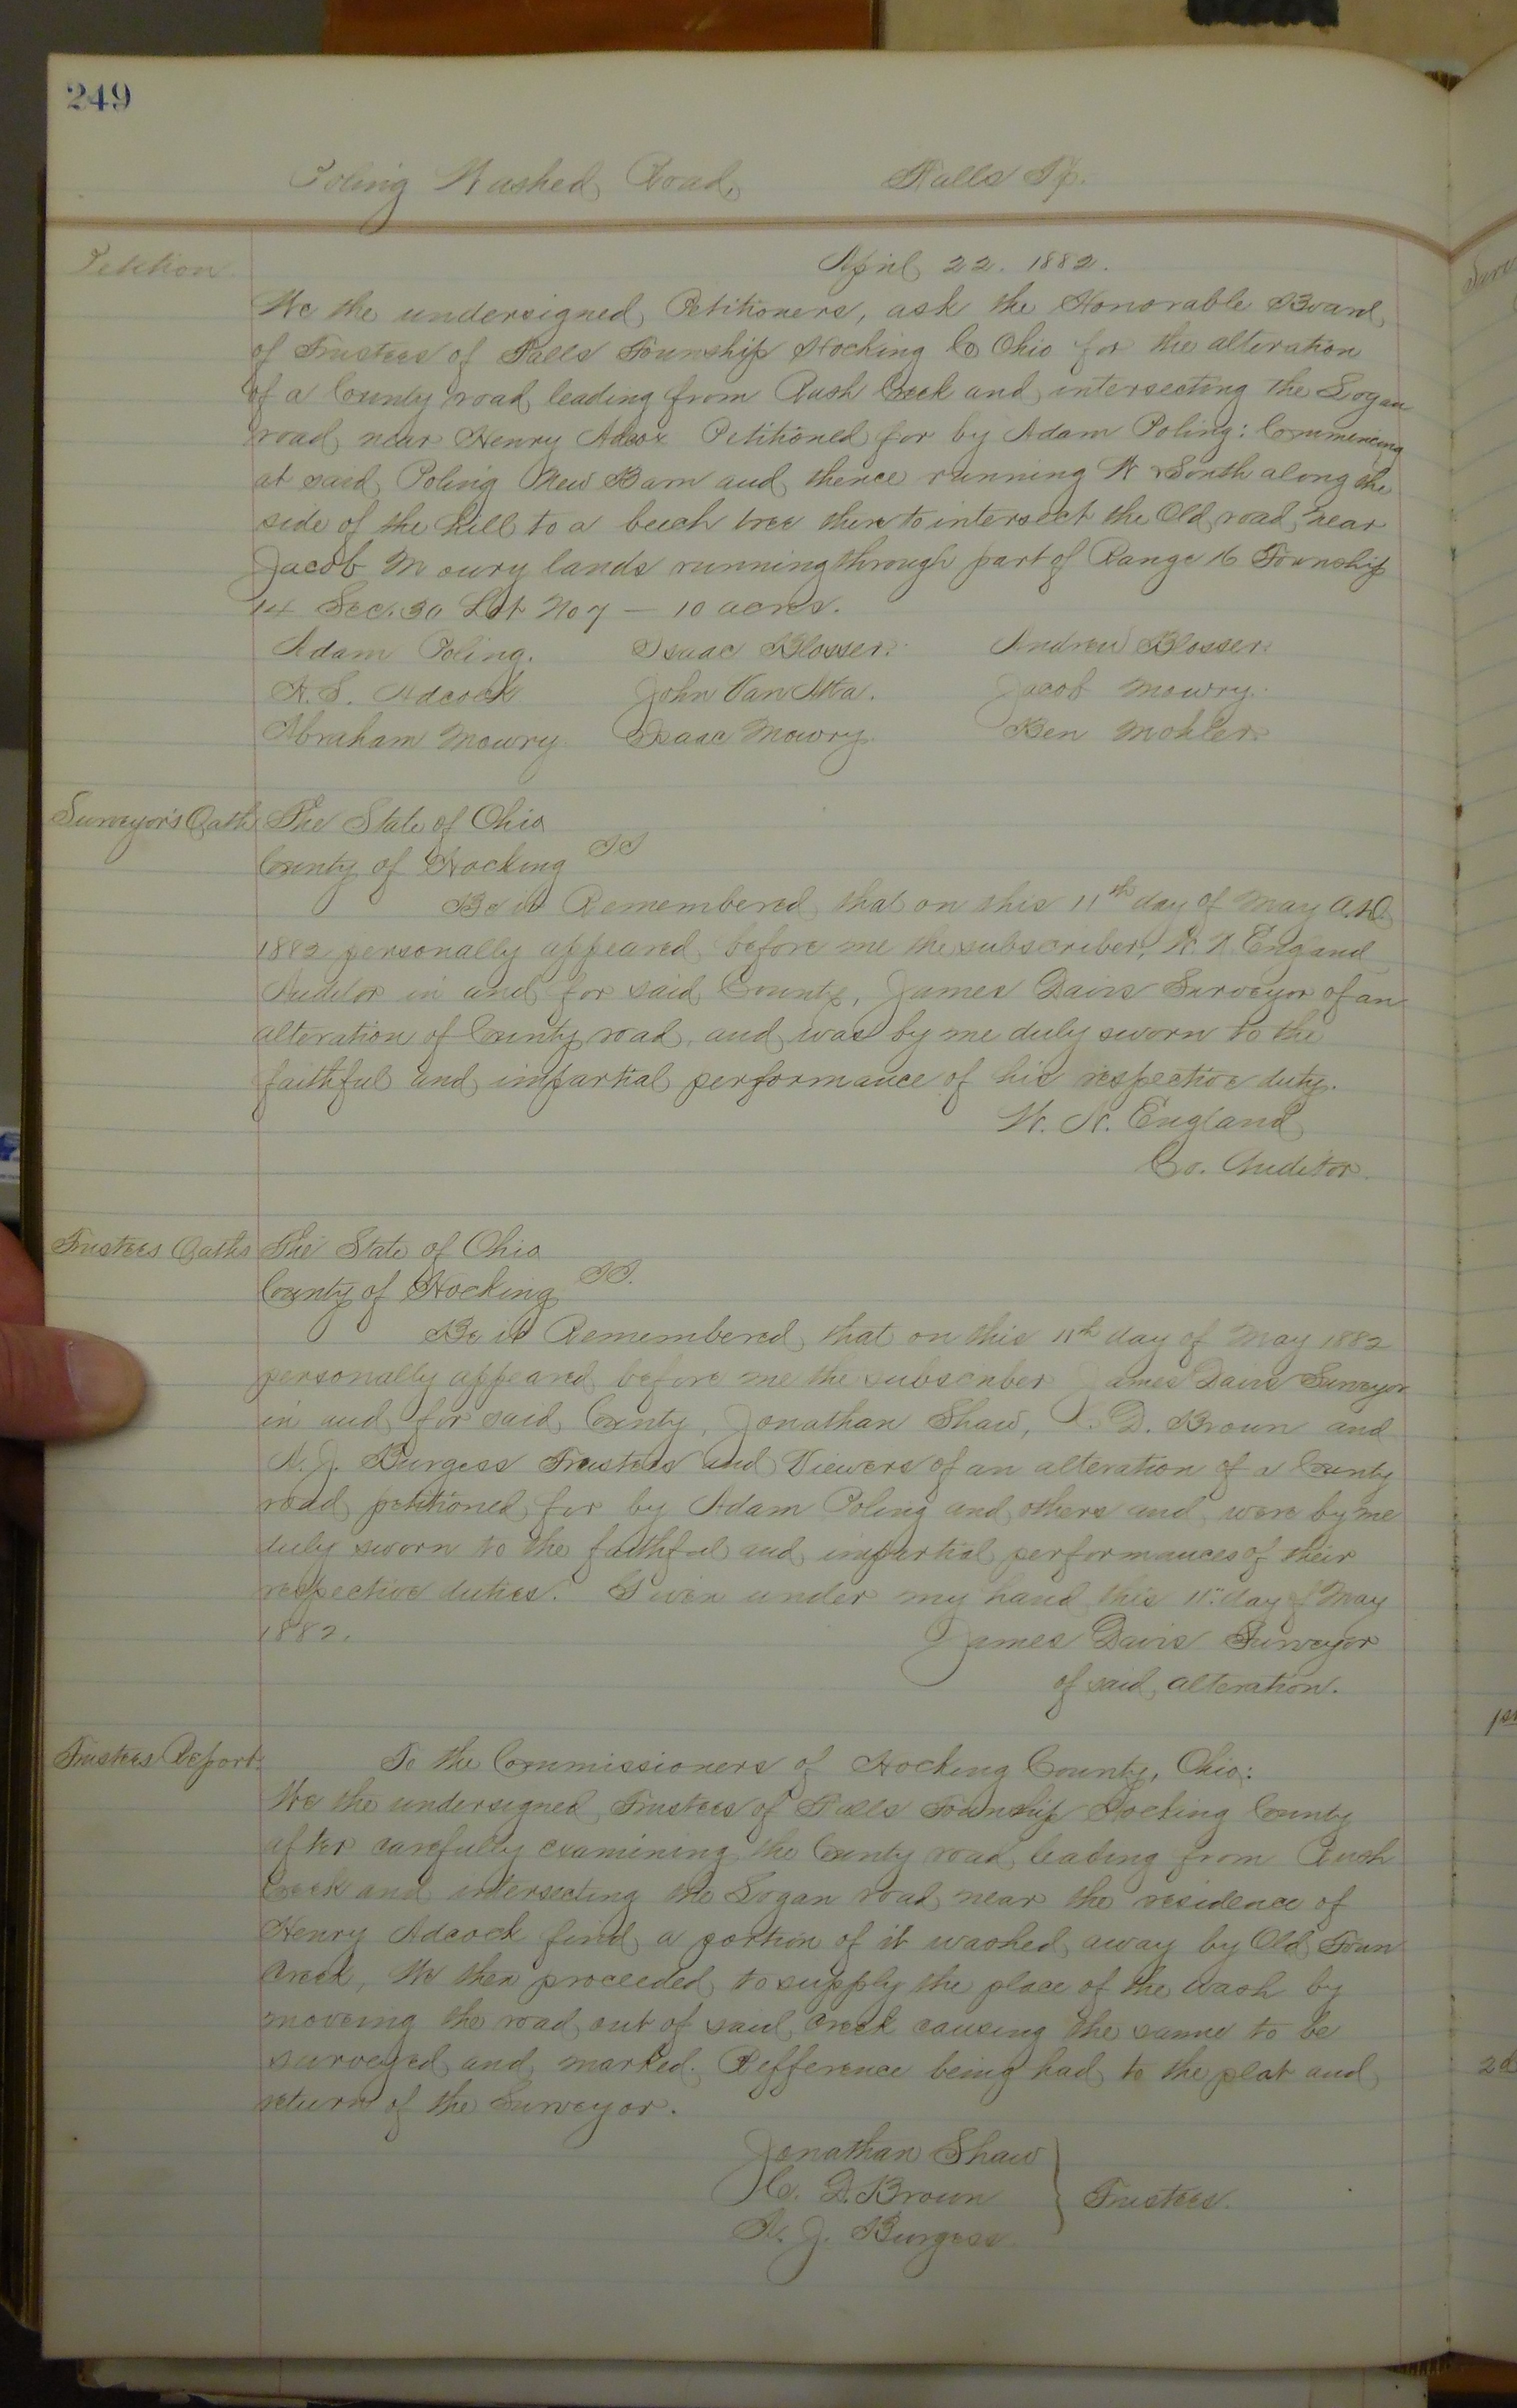 249
Poling Washed Road, Falls Tp.
Petition
April 22. 1882.
We the undersigned Petitioners, ask the Honorable Board
of Trustees of Falls Township Hocking Co Ohio for the alteration
of a County road leading from Rush Creek and intersecting the Logan
road near Henry Adcox Petitioned for by Adam Poling: Commencing
at said Poling New Barn and thence running N & South along the
side of the hill to a beech tree there to intersect the Old road near
Jacob Moury lands running through part of Range 16 Township
14 Sec. 30 Lot No 7 — 10 acres.
Adam Poling. Isaac Blosser. Andrew Blosser.
H. S. Adcock John Van Atta. Jacob Mowry.
Abraham Mowry. Isaac Mowry. Ben Mohler.
Surveyor's Oath The State of Ohio
County of Hocking SS
Be it Remembered that on this 11th day of May A.D.
1882 personally appeared before me the subscriber, W. N. England
Auditor in and for said County, James Davis Surveyor of an
alteration of County road, and was by me duly sworn to the
faithful and impartial performance of his respective duty.
W. N. England
Co. Auditor.
Trustees Oaths The State of Ohio
County of Hocking SS.
Be it Remembered that on this 11th day of May 1882
personally appeared before me the subscriber James Davis Surveyor
in and for said County, Jonathan Shaw, C. D. Brown and
N. J. Burgess Trustees and Viewers of an alteration of a County
road petitioned for by Adam Poling and others and were by me
duly sworn to the faithful and impartial performances of their
respective duties. Given under my hand this 11" day of May
1882. James Davis Surveyor
of said alteration.
Trustees Report. To the Commissioners of Hocking County, Ohio:
We the undersigned Trustees of Falls Township Hocking County
after carefully examining the County road leading from Rush
Creek and intersecting the Logan road near the residence of
Henry Adcock find a portion of it washed away by Old Town
Creek, We then proceeded to supply the place of the wash by
moveing the road out of said Creek causing the same to be
surveyed and marked. Refference being had to the plat and
return of the Surveyor.
Jonathan Shaw
C. D. Brown } Trustees.
N. J. Burgess